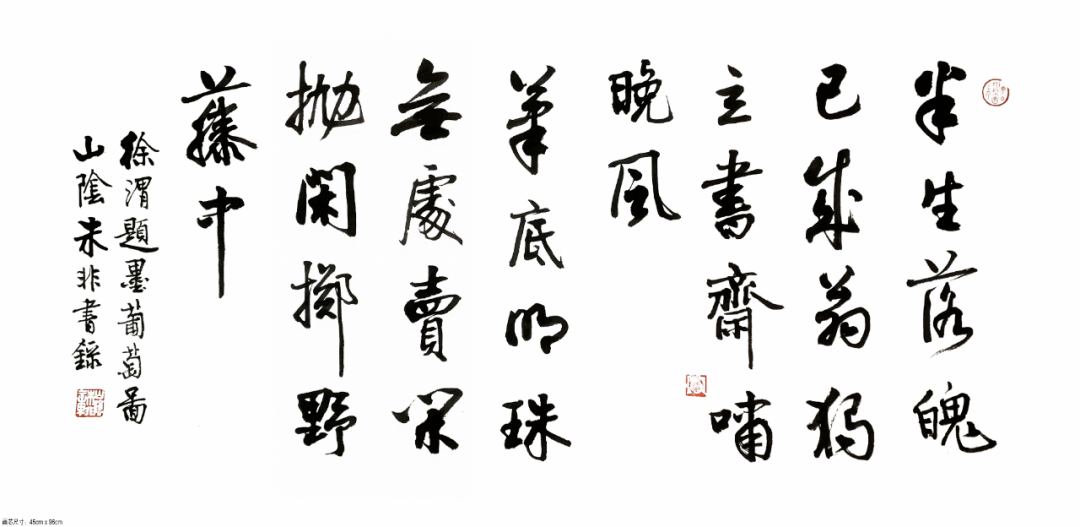 半生落魄
已成翁獨
立書齋嘯
晚風
筆底明珠
無處賣閑
拋閑擲野
藤中
徐渭題墨葡萄圖
山陰朱非書錄
画芯尺寸：45cm x 96cm